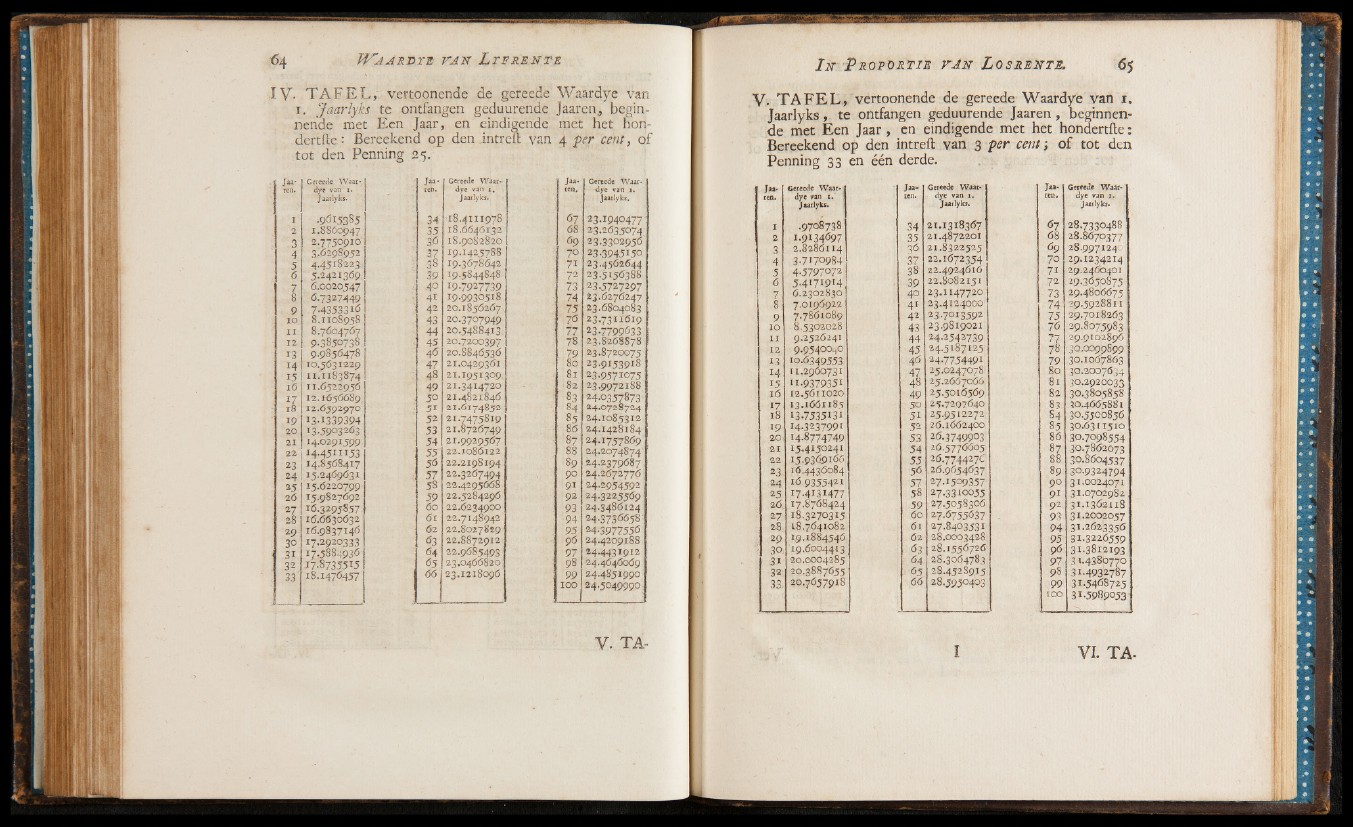 64 WAARDYE VAN LYFRENTE
IV. TAFEL, vertoonende de gereede Waardye van
1. Jaarlyks te ontfangen geduurende Jaaren, begin-
nende met Een Jaar, en eindigende met het hon-
dertste: Bereekend op den intrest van 4 per cent, of
tot den Penning 25.
Jaa- Gereede Waar-
ren. dye van 1.
Jaarlyks.
1 .9615385
2 1.8860947
3 2.7750910
4 3.6298952
5 4.4518223
6 5.2421369
7 6.0020547
8 6.7327449
9 7.4353316
10 8.1108958
11 8.7604767
12 9.3850738
13 9.9856478
14 10.5631229
15 11.1183874
16 11.6522956
17 12.1656689
18 12.6592970
19 13.1339394
20 13.5903263
21 14.0291599
22 14.4511153
23 14.8568417
24 15.2469631
25 15.6220799
26 15.9827692
27 16.3295857
28 16.6630632
29 16.9837146
30 17.2920333
31 17.5884936
32 17.8735515
33 18.1476457
Jaa- Gereede Waar-
ren. dye van 1.
Jaarlyks.
34 18.4111978
35 18.6646132
36 18.9082820
37 19.1425788
38 19.3678642
39 19.5844848
40 19.7927739
41 19.9930518
42 20.1856267
43 20.3707949
44 20.5488413
45 20.7200397
46 20.8846536
47 21.0429361
48 21.1951309
49 21.3414720
50 21.4821846
51 21.6174852
52 21.7475819
53 21.8726749
54 21.9929567
55 22.1086122
56 22.2198194
57 22.3267494
58 22.4295668
59 22.5284296
60 22.6234900
61 22.7148942
62 22.8027829
63 22.8872912
64 22.9685493
65 23.0466820
66 23.1218096
Jaa- Gereede Waar-
ren. dye van 1.
Jaarlyks.
67 23.1940477
68 23.2635074
69 23.3302956
70 23.3945150
71 23.4562644
72 23.5156388
73 23.5727297
74 23.6276247
75 23.6804083
76 23.7311619
77 23.7799633
78 23.8268878
79 23.8720075
80 23.9153918
81 23.9571075
82 23.9972188
83 24.0357873
84 24.0728724
85 24.1085312
86 24.1428184
87 24.1757869
88 24.2074874
89 24.2379687
90 24.2672776
91 24.2954592
92 24.3225569
93 24.3486124
94 24.3736658
95 24.3977556
96 24.4209188
97 24.4431912
98 24.4646069
99 24.4851990
100 24.5049990
V. TA-
IN PROPORTIE VAN LOSRENTE. 65
V. TAFEL, vertoonende de gereede Waardye van 1.
Jaarlyks, te ontfangen geduurende Jaaren, beginnen-
de met Een Jaar, en eindigende met het hondertste:
Bereekend op den intrest van 3 per cent; of tot den
Penning 33 en één derde.
Jaa- Gereede Waar-
ren. dye van 1.
Jaarlyks.
1 .9708738
2 1.9134697
3 2.8286114
4 3.7170984
5 4.5797072
6 5.4171914
7 6.2302830
8 7.0196922
9 7.7861089
10 8.5302028
11 9.2526241
12 9.9540040
13 10.6349553
14 11.2960731
15 11.9379351
16 12.5611020
17 13.1661185
18 13.7535131
19 14.3237991
20 14.8774749
21 15.4150241
22 15.9369166
23 16.4436084
24 16.9355421
25 17.4131477
26 17.8768424
27 18.3270315
28 18.7641082
29 19.1884546
30 19.6004413
31 20.0004285
32 20.3887655
33 20.7657918
Jaa- Gereede Waar-
ren. dye van 1.
Jaarlyks.
34 21.1318367
35 21.4872201
36 21.8322525
37 22.1672354
38 22.4924616
39 22.8082151
40 23.1147720
41 23.4124000
42 23.7013592
43 23.9819021
44 24.2542739
45 24.5187125
46 24.7754491
47 25.0247078
48 25.2667066
49 25.5016569
50 25.7297640
51 25.9512272
52 26.1662400
53 26.3749903
54 26.5776605
55 26.7744276
56 26.9654637
57 27.1509357
58 27.3310055
59 27.5058306
60 27.6755637
61 27.8403531
62 28.0003428
63 28.1556726
64 28.3064783
65 28.4528915
66 28.5950403
Jaa- Gereede Waar-
ren. dye van 1.
Jaarlyks.
67 28.7330488
68 28.8670377
69 28.997124
70 29.1234214
71 29.2460401
72 29.3650875
73 29.4806675
74 29.5928811
75 29.7018263
76 29.8075983
77 29.9102896
78 30.0099899
79 30.1067863
80 30.2007634
81 30.2920033
82 30.3805858
83 30.4665881
84 30.5500856
85 30.6311510
86 30.7098554
87 30.7862073
88 30.8604537
89 30.9324794
90 31.0024071
91 31.0702982
92 31.1362118
93 31.2002057
94 31.2623356
95 31.3226559
96 31.3812193
97 31.4380770
98 31.4932787
99 31.5468725
100 31.5989053
I VI. TA-